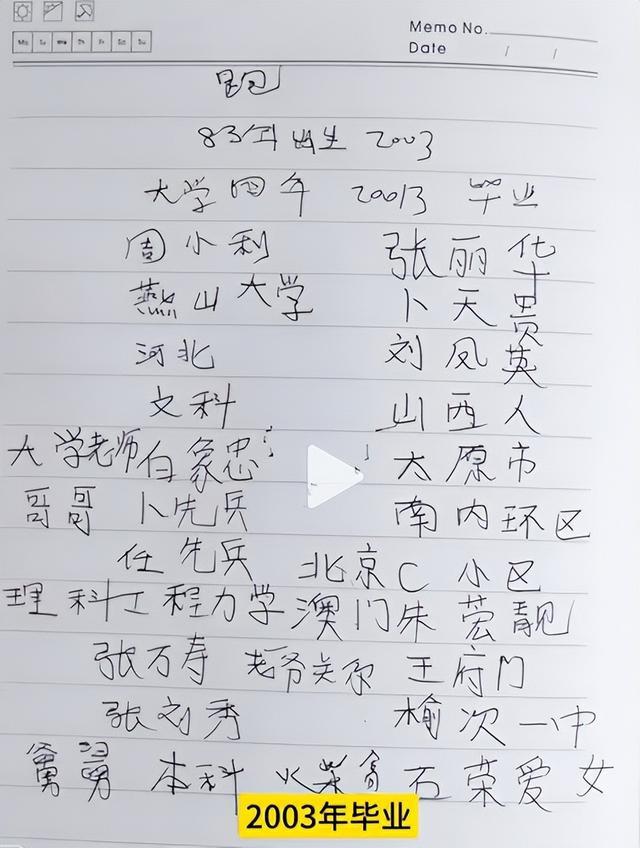 Memo No.
Date / /
Mo Tu We Th Fr Sa Su
跑
83年出生 2003
大学四年 20013 毕业
周小利 张丽华
燕山大学 卜天贵
河北 刘凤英
文科 山西人
大学老师白象忠 太原市
哥哥 卜先兵 南内环区
任先兵 北京C小区
理科工程力学澳门朱荣靓
张万寿 关系 王府门
张刘秀 榆次一中
舅舅 本科 火柴 石荣爱女
2003年毕业